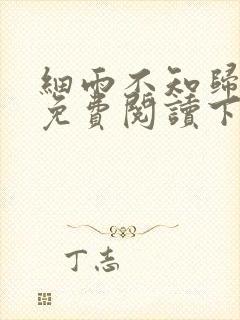 細雨不知歸
免費閱讀下
丁志